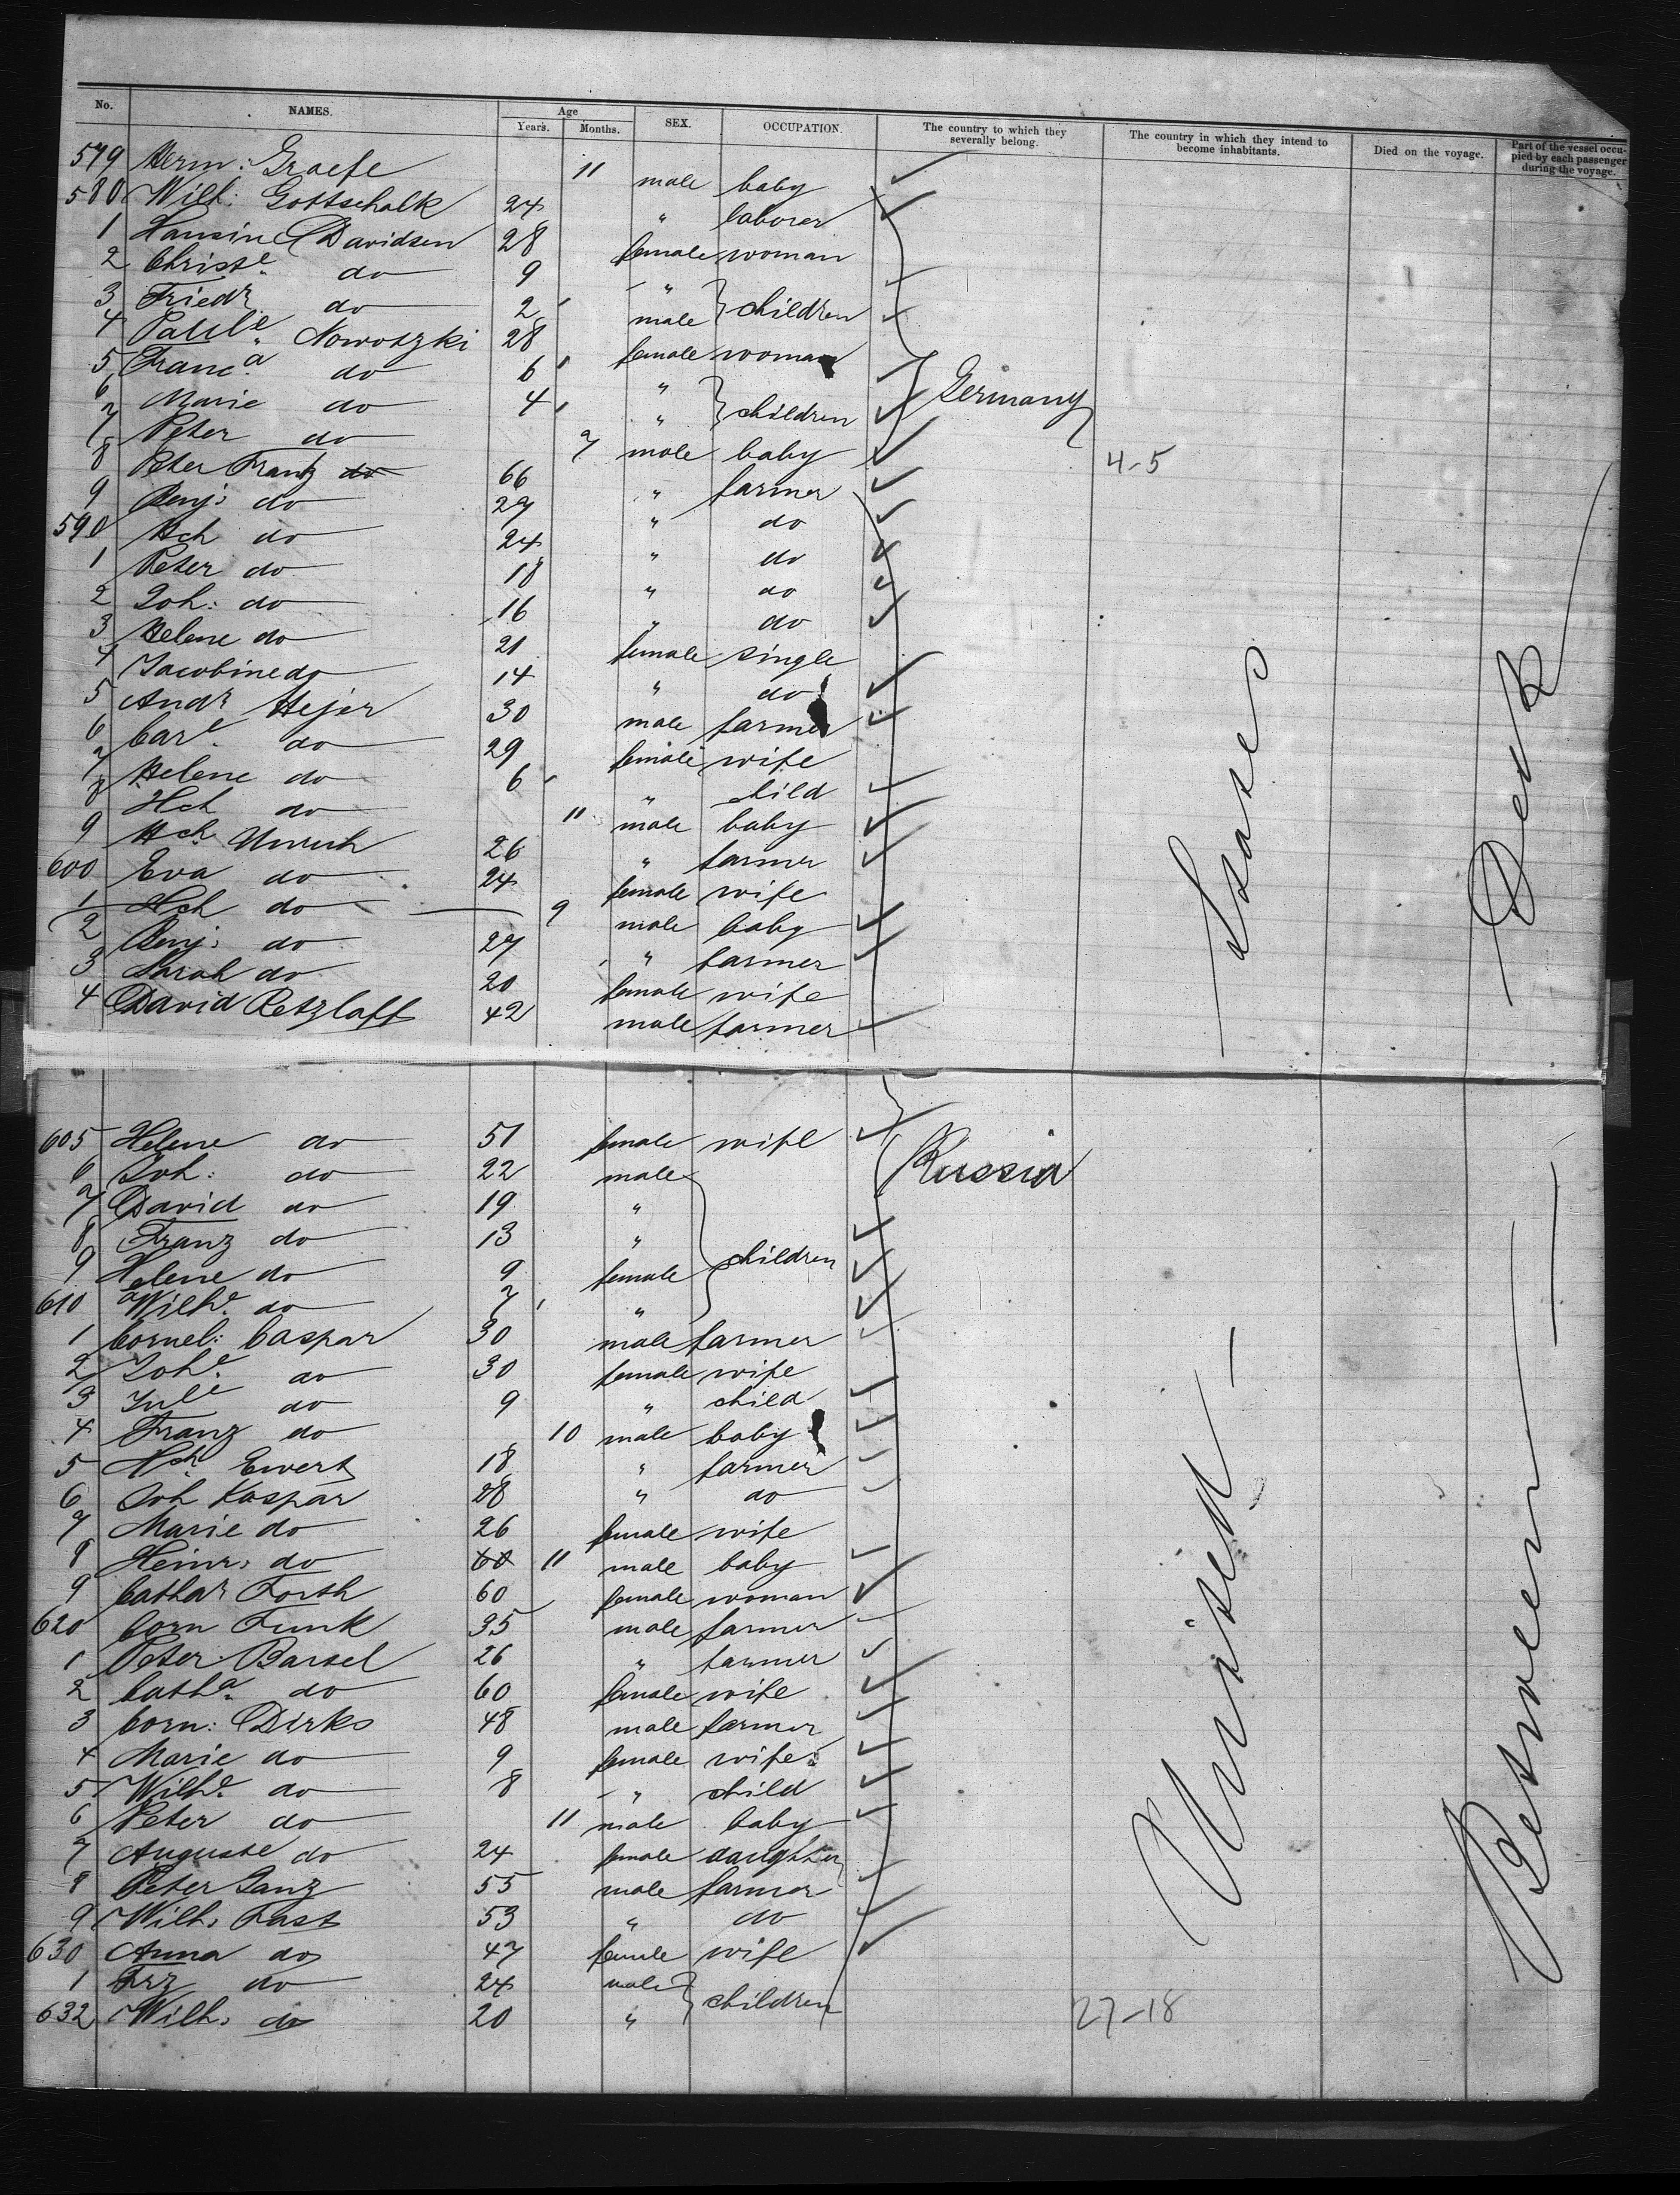 No. NAMES. Age Years. Months. SEX. OCCUPATION. The country to which they severally belong. The country in which they intend to become inhabitants. Died on the voyage. Part of the vessel occupied by each passenger during the voyage.
579 Herm: Graefe 11 male baby
580 Wilh: Gottschalk 24 " laborer
1 Hansine Davidsen 28 female woman
2 Christe. do 9 "
3 Friedr. do 2 male children
4 Paule. Nowotzki 28 female woman
5 Franca do 6 "
6 Marie do 4 " children Germany
7 Peter do 7 male baby 4-5
8 Peter Frantz do 66 " farmer
9 Benj: do 27 " do
590 Hch do 24 " do
1 Peter do 18 " do
2 Joh: do 16 " do
3 Helene do 21 female single
4 Jacobine do 14 " do
5 Andr Hejer 30 male farmer
6 Care. do 29 female wife
7 Helene do 6 " child
8 Hch do 11 male baby
9 Hch. Unruh 26 " farmer
600 Eva do 24 female wife
1 Hch do 9 male baby
2 Benj: do 27 " farmer
3 Sarah do 20 female wife
4 David Retzlaff 42 male farmer
605 Helene do 51 female wife
6 Joh: do 22 male Russia
7 David do 19 "
8 Franz do 13 "
9 Helene do 9 female children
610 Wilhe. do 7 "
1 Cornel: Caspar 30 male farmer
2 Johe. do 30 female wife
3 Jule do 9 " child
4 Franz do 10 male baby
5 Hch Ewert 18 " farmer
6 Joh Kaspar 28 " do
7 Marie do 26 female wife
8 Heinr: do 60 11 male baby
9 Cathar Forth 60 female woman
620 Corn Funk 35 male farmer
1 Peter Bartel 26 " farmer
2 Catha. do 60 female wife
3 Corn: Dirks 48 male farmer
4 Marie do 9 female wife
5 Wilhe. do 8 " child
6 Peter do 11 male baby
7 Auguste do 24 female daughter
8 Peter Janz 55 male farmer
9 Wilh: Fast 53 " do
630 Anna do 47 female wife
1 Frz do 24 male
632 Wilh: do 20 " children 27-18
United States
Between Deck